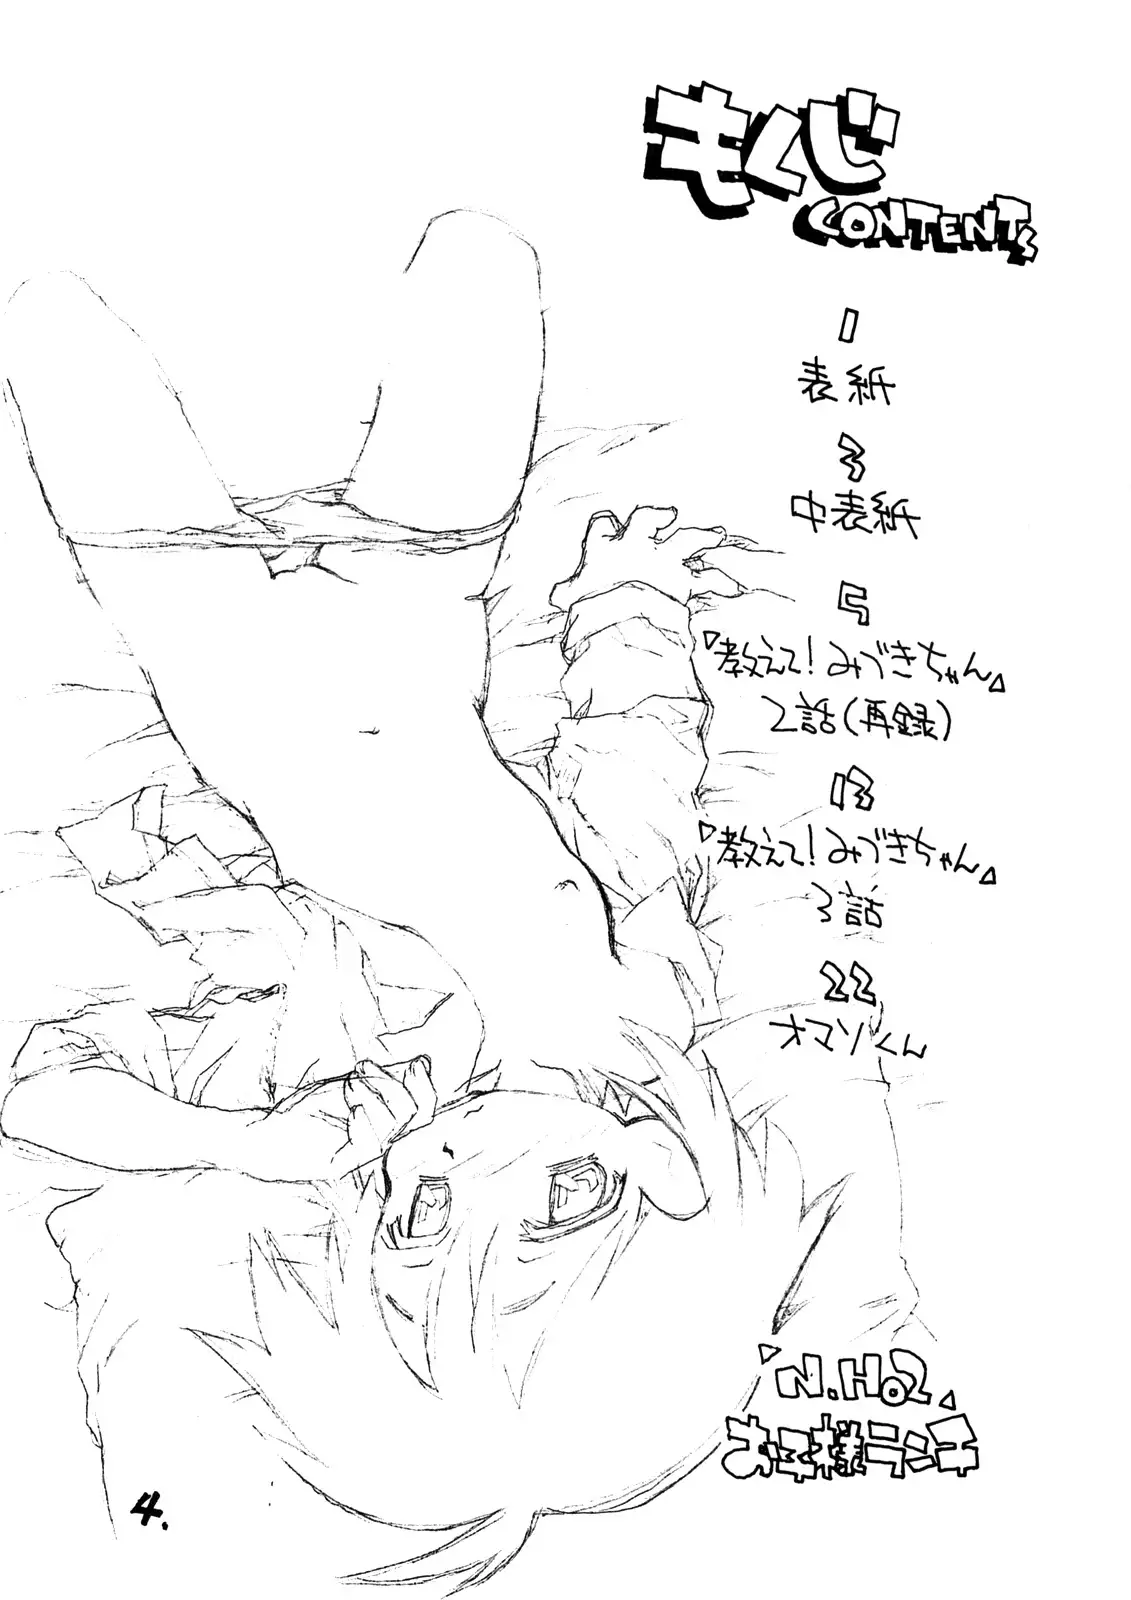 もくじ
CONTENTS
1
表紙
3
中表紙
5
『教えて!みづきちゃん』
2話(再録)
13
『教えて!みづきちゃん』
3話
22
オマソくん
『N.Ho2』
お子様ランチ
4.